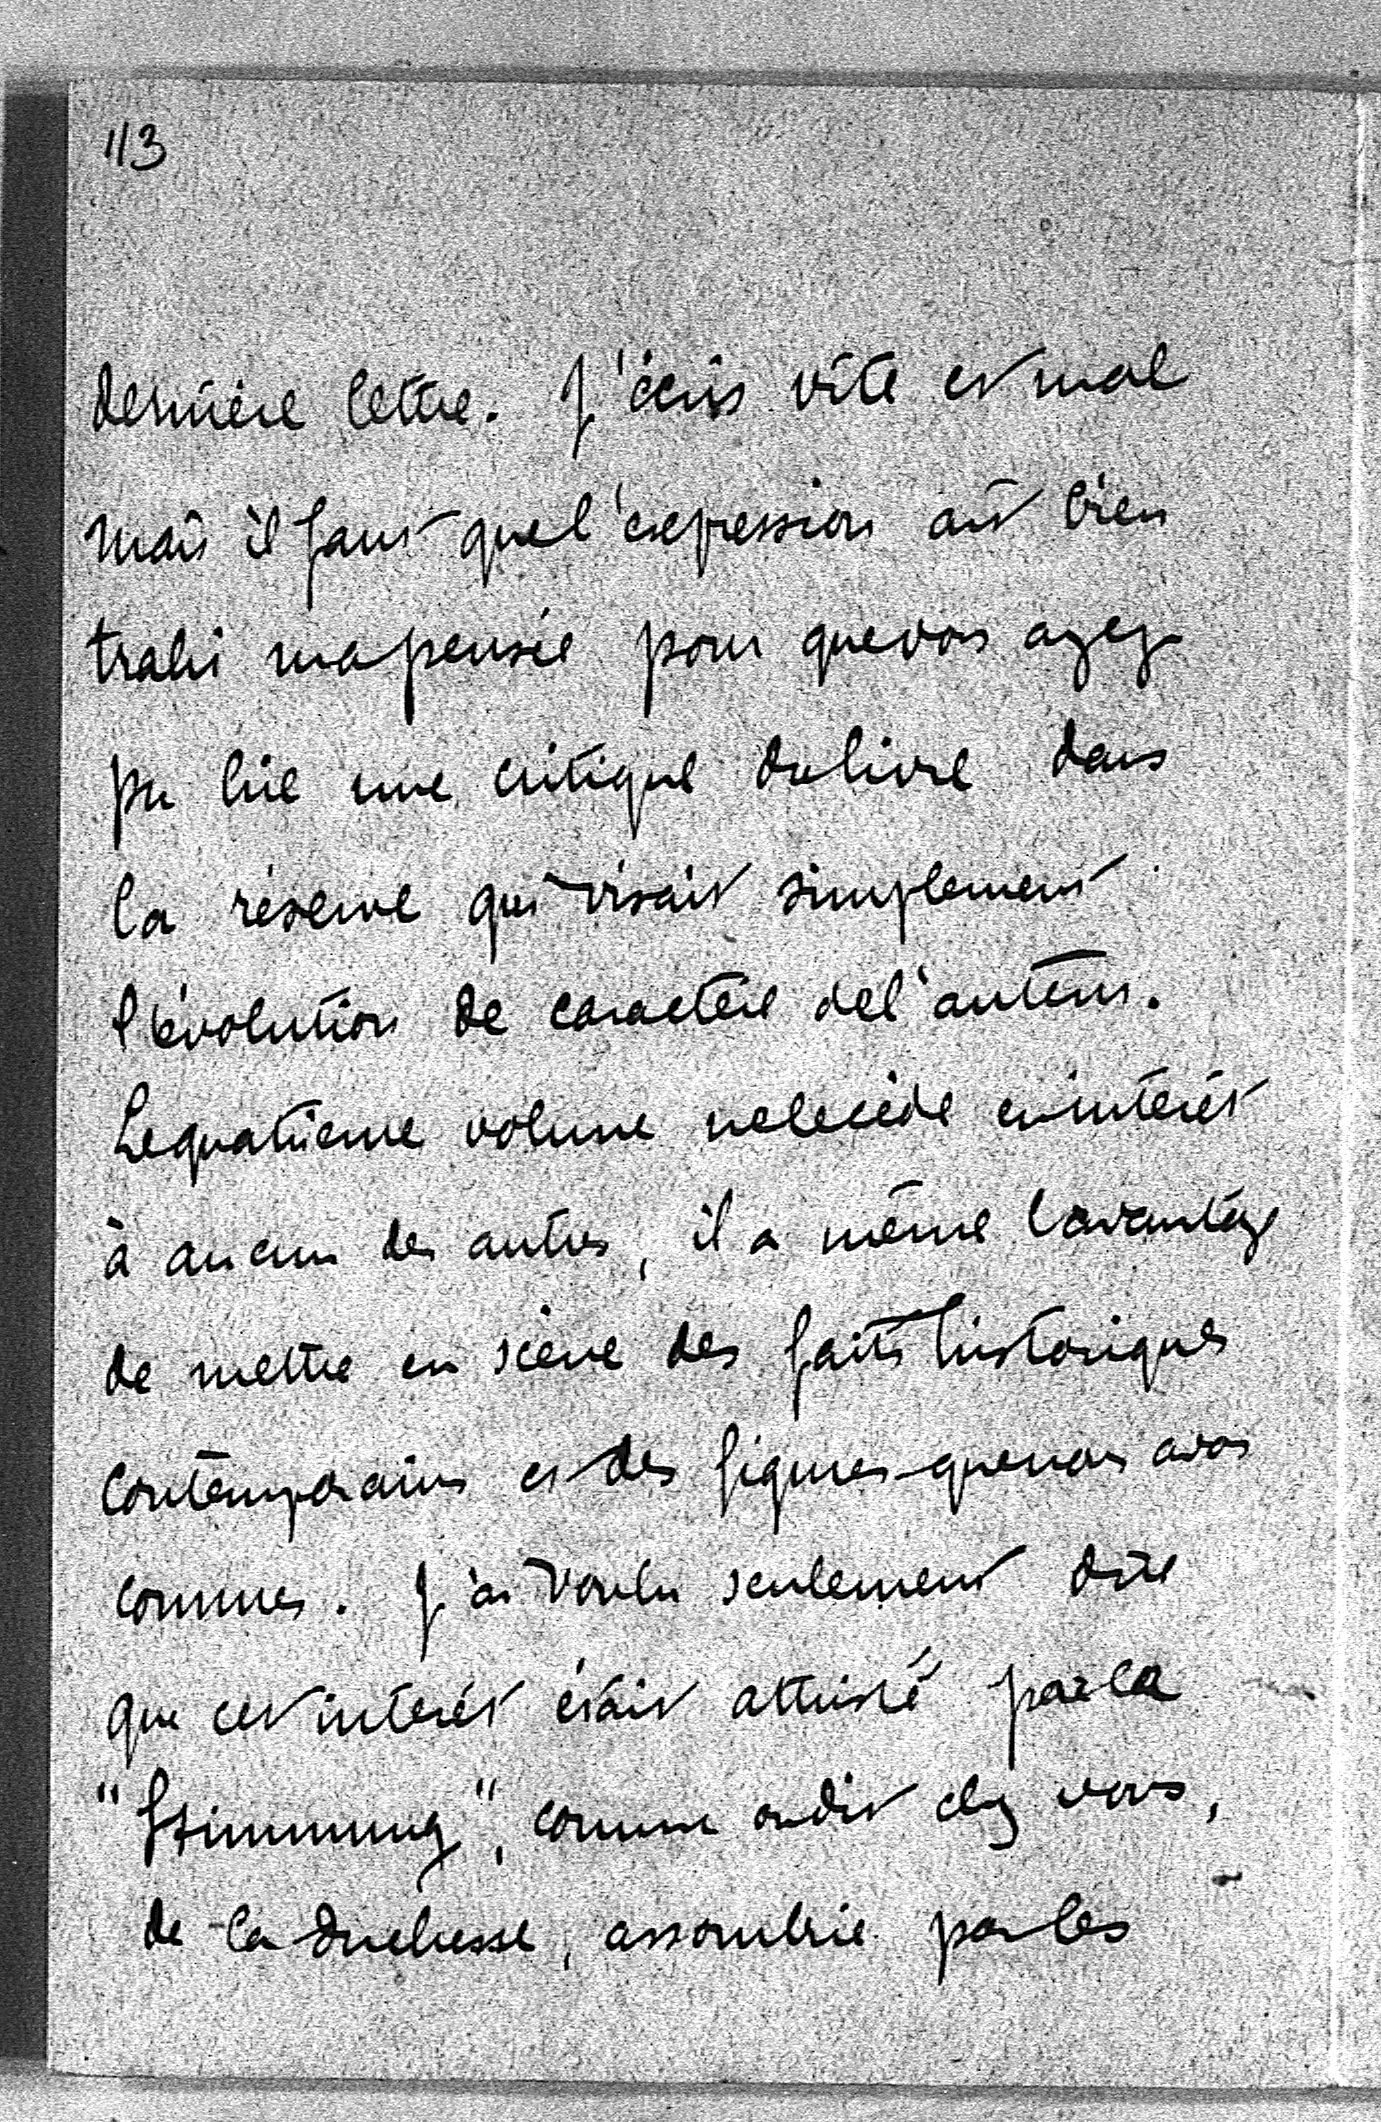 113
dernière lettre. J'écris vite et mal
mais il faut que l'expression ait bien
trahi ma pensée pour que vous ayez
pu lire une critique du livre dans
la réserve qui visait simplement
l'évolution de caractère de l'auteur.
Le quatrième volume ne le cède en intérêt
à aucun des autres, il a même l'avantage
de mettre en scène des faits historiques
contemporains et des figures que nous avons
connues. J'ai voulu seulement dire
que cet intérêt était attristé par la
"Stimmung", comme on dit chez vous,
de la duchesse, assombrie par les